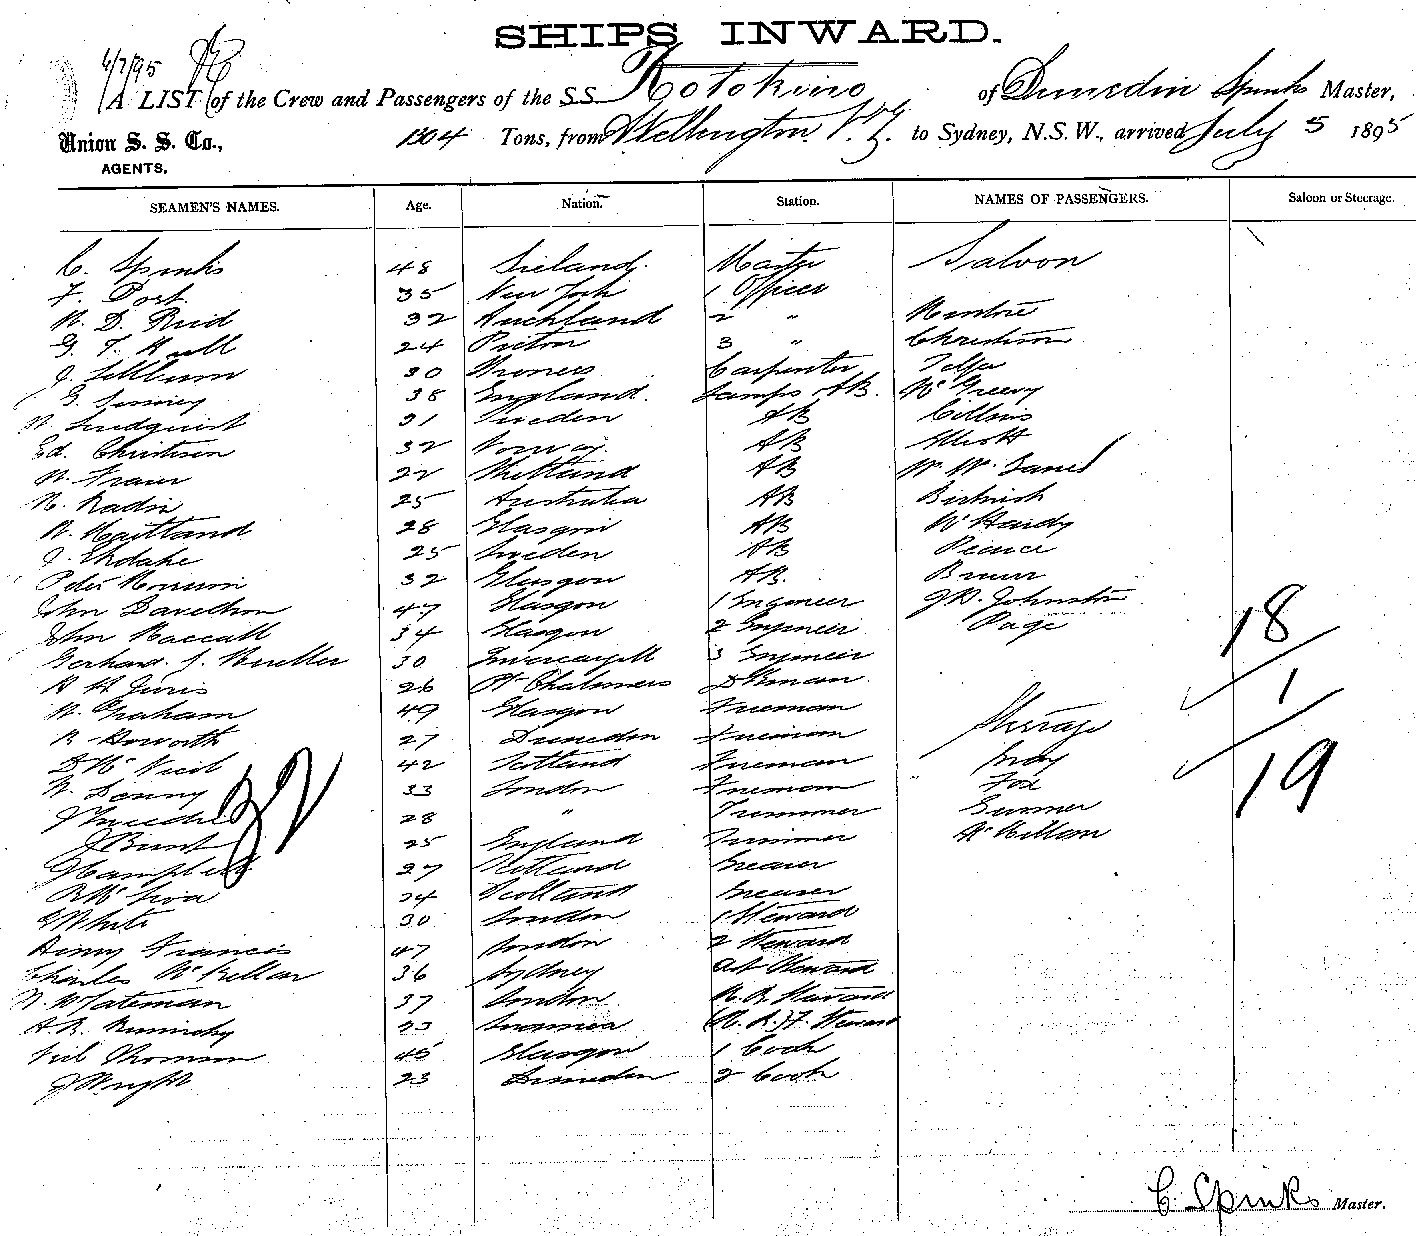 SHIPS INWARD.
6/7/95
A LIST of the Crew and Passengers of the S.S. Rotokino of Dunedin Spinks Master,
Union S. S. Co., AGENTS. 1304 Tons, from Wellington N.Z. to Sydney, N.S.W., arrived July 5 1895
SEAMEN'S NAMES. Age. Nation. Station. NAMES OF PASSENGERS. Saloon or Steerage.
C. Spinks 48 Ireland Master Saloon
F. Post 35 New York 1 Officer
N. D. Reid 32 Auckland 2 "
G. T. Hall 24 Picton 3 "
30 Carpenter
G. 38 England. Lamps AB.
N. Lindquist 31 Sweden AB Collins
Ed. Christison 32 Norway AB
N. Fraser 22 Shetland AB
25 Australia AB
N. Maitland 28 Glasgow AB McHardy
J. 25 Sweden AB Pearce
Peter 32 Glasgow AB.
John Davidson 47 Glasgow 1 Engineer Johnston
John 34 Glasgow 2 Engineer Page
Gerhard J. Mueller 30 Invercargill 3 Engineer
18
26 Pt Chalmers
1
N. Graham 49 Glasgow Fireman Steerage
27 Dunedin Fireman
D McNicol 42 Scotland Fireman Gray
N. Denny 33 London Fireman Fox
19
28 " Trimmer
32
J Bunt 25 England Trimmer McKellam
J Campbell 27 Shetland Greaser
24 Scotland Greaser
White 30 London 1 Steward
Henry Francis 47 London 2 Steward
Charles McKellar 36 Sydney Steward
N. W Tateman 37 London Steward
A. R. 23 Steward
Neil Thomson 45 Glasgow 1 Cook
J Wright 23 Dunedin 2 Cook
C. Spinks Master.